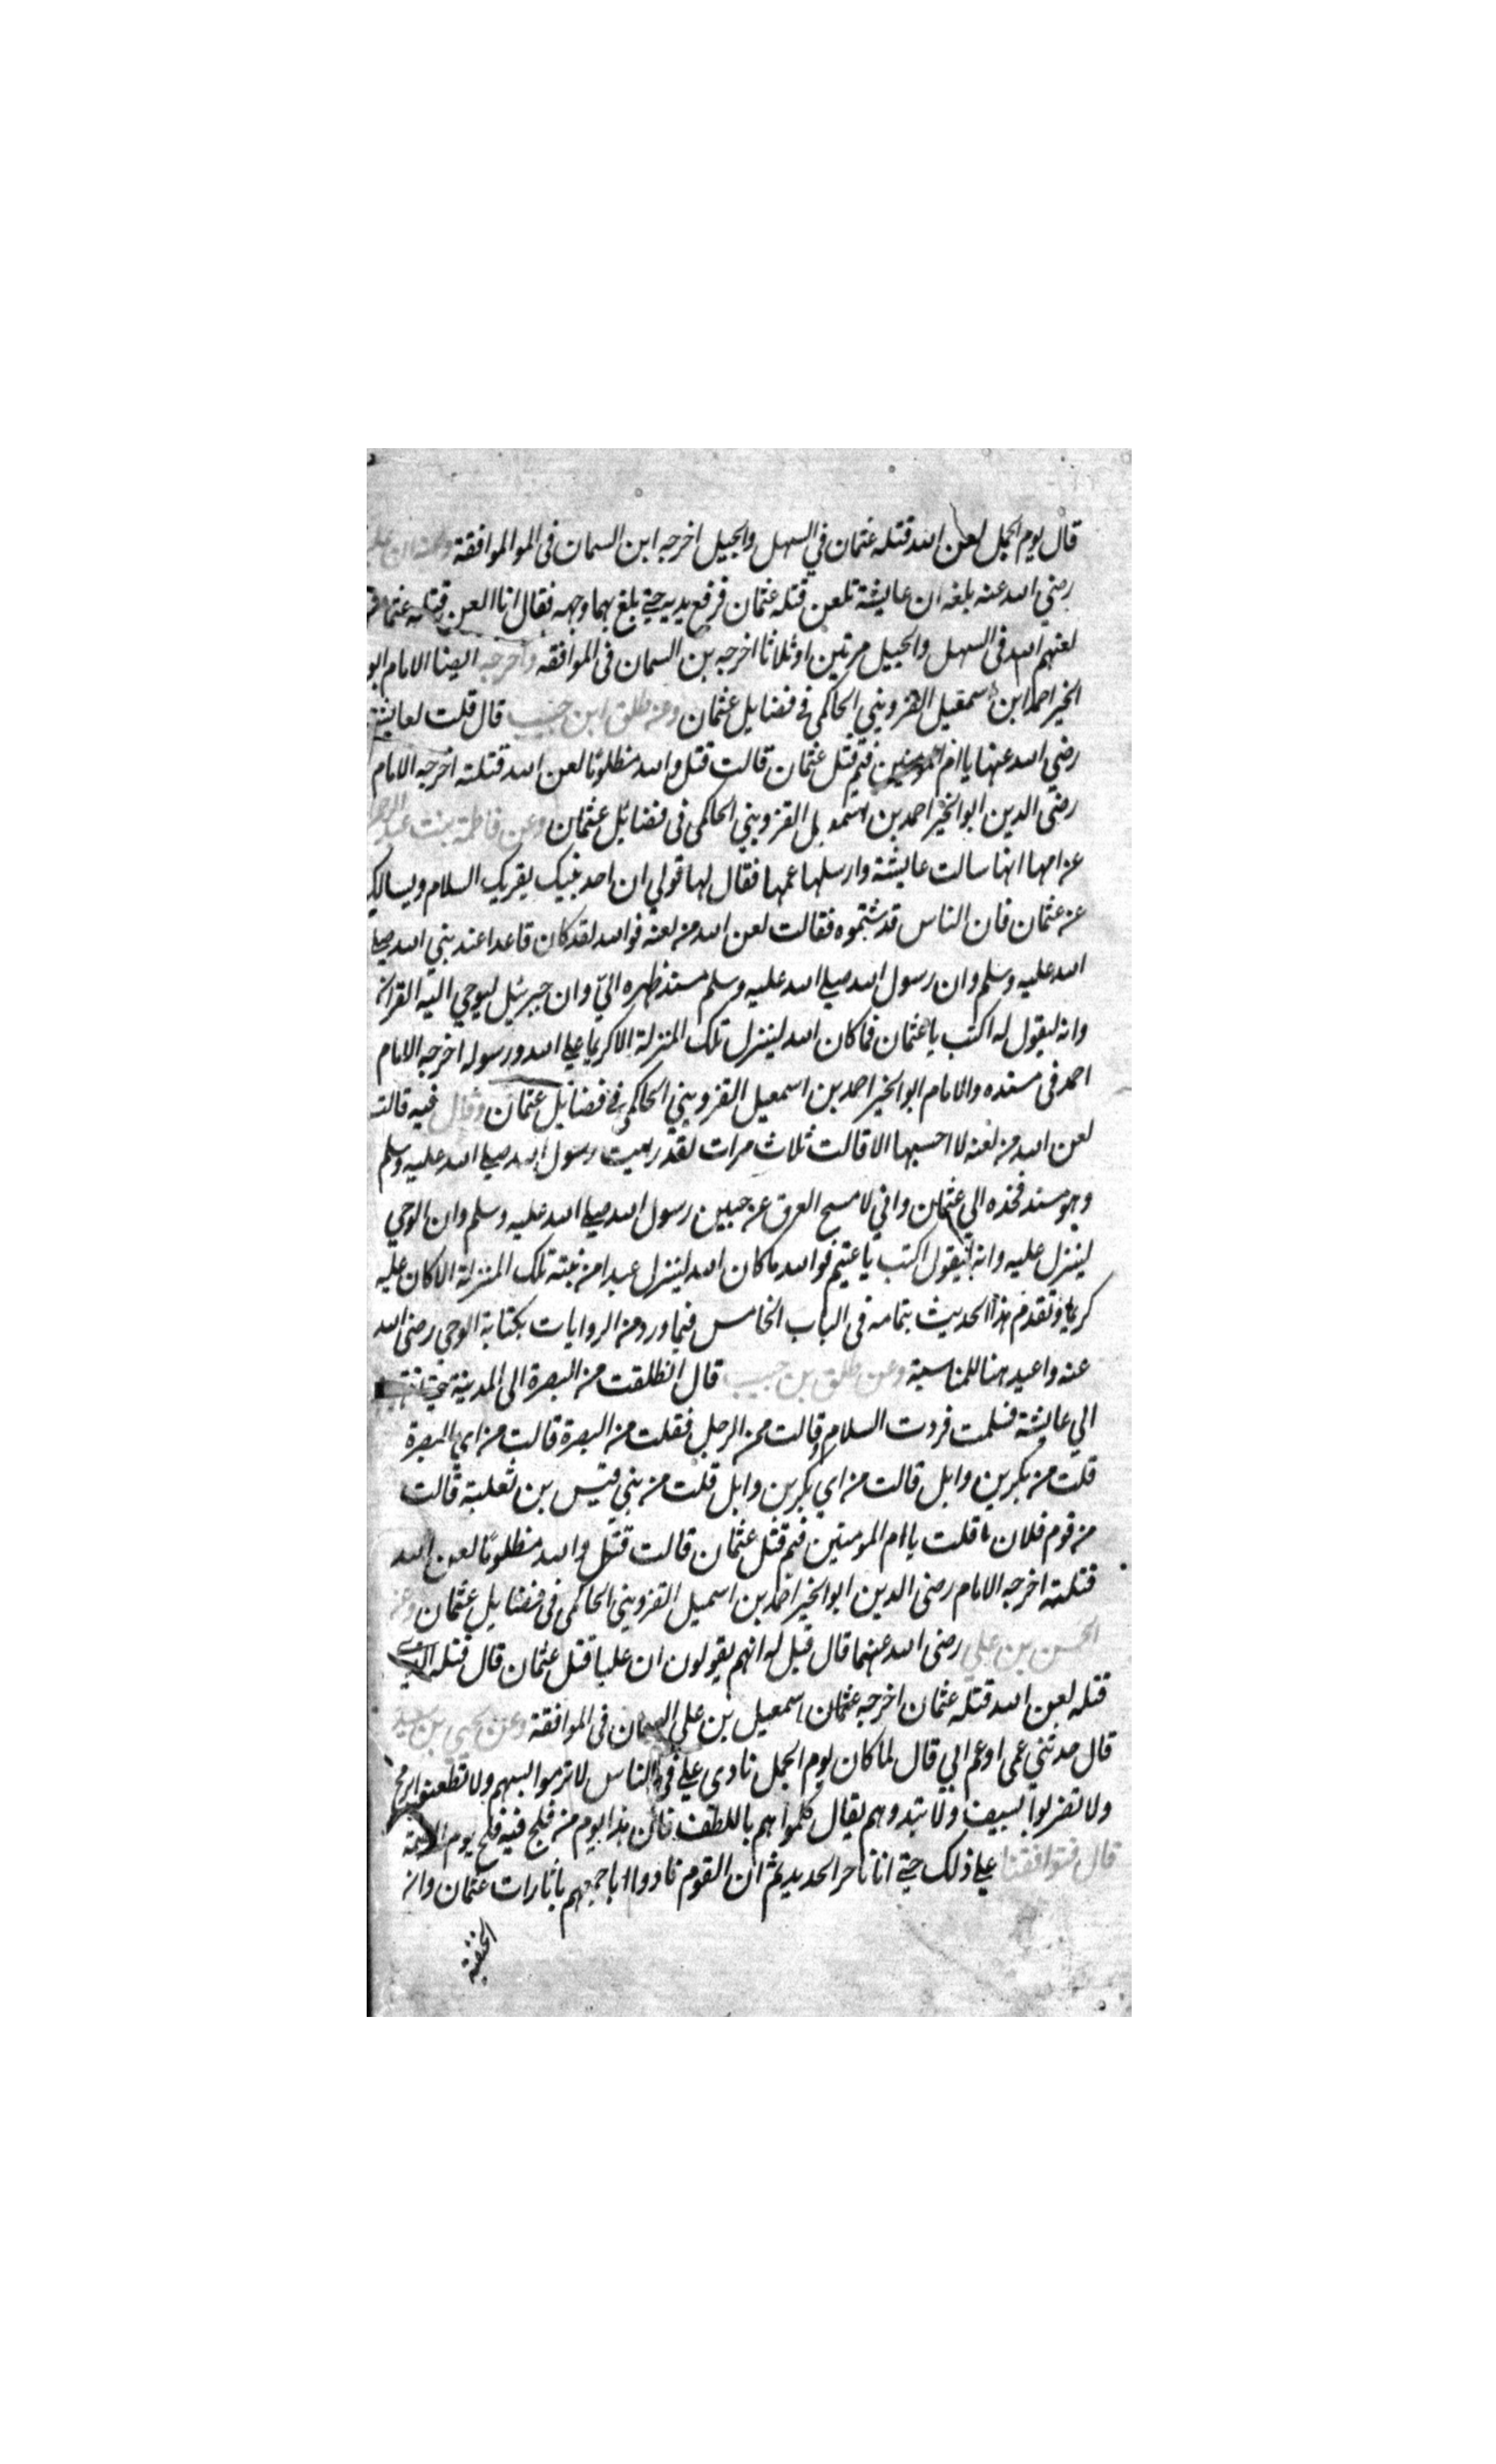 قال يوم الجمل لعن الله قتلة عثمان في السهل والجبل اخرجه ابن السمان فى الموالموافقة وعنه ان على
رضي الله عنه بلغه ان عايشة تلعن قتلة عثمان فرفع يديه حتى بلغ بهما وجهه فقال انا العن قتلة عثمان
لعنهم الله فى السهل والجبل مرتين او ثلاثا اخرجه بن السمان فى الموافقه واخرجه ايضا الامام ابو
الخير احمد ابن اسمعيل القزويني الحاكمى في فضايل عثمان وعن طلق ابن حبيب قال قلت لعايشة
رضي الله عنها يا ام المومنين فيم قتل عثمان قالت قتل والله مظلوما لعن الله قتلته اخرجه الامام
رضى الدين ابو الخير احمد بن القزويني الحاكمى فى فضائل عثمان وعن فاطمة بنت عبد الرحمن
عن امها انها سالت عايشة وارسلها عمها فقال لها قولي ان احد بنيك يقريك السلام ويسالك
عن عثمان فان الناس قد شتموه فقالت لعن الله من لعنه فوالله لقد كان قاعدا عند نبي الله صلى
الله عليه وسلم وان رسول الله صلى الله عليه وسلم مسند ظهره اليّ وان جبرئيل ليوحي اليه القران
وانه ليقول له اكتب يا عثمان فما كان الله لينزل تلك المنزلة الا كريما على الله ورسوله اخرجه الامام
احمد فى مسنده والامام ابو الخير احمد بن اسمعيل القزويني الحاكمى في فضايل عثمان وقال فيه قالت
لعن الله من لعنه لا احسبها الا قالت ثلاث مرات لقد رايت رسول الله صلى الله عليه وسلم
وهو مسند فخذه الي عثمان واني لامسح العرق عن جبين رسول الله صلى الله عليه وسلم وان الوحي
لينزل عليه وانه ليقول اكتب يا عثيم فوالله ما كان الله لينزل عبدا من نبيه تلك المنزلة الا كان عليه
كريما وتقدم هذا الحديث بتمامه فى الباب الخامس فيما ورد من الروايات بكتابة الوحي رضى الله
عنه واعيد هنا للمناسبة وعن طلق بن حبيب قال انطلقت من البصرة الى المدينة حتى انتهيت
الي عايشة فسلمت فردت السلام وقالت من الرجل فقلت من البصرة قالت من اي البصرة
قلت من بكر بن وايل قالت من اي بكر بن وايل قلت من بني قيس بن ثعلبة قالت
من قوم فلان قلت يا ام المومنين فيم قتل عثمان قالت قتل والله مظلوما لعن الله
قتلته اخرجه الامام رضى الدين ابو الخير احمد بن اسمعيل القزويني الحاكمى فى فضايل عثمان وعن
الحسن بن علي رضى الله عنهما قال قيل له انهم يقولون ان عليا قتل عثمان قال قتله الذى
قتله لعن الله قتلة عثمان اخرجه عثمان اسمعيل بن على السمان فى الموافقة وعن يحيى بن سعيد
قال حدثني عمى او عم ابي قال لما كان يوم الجمل نادى علي في الناس لا ترموا بسهم ولا تطعنوا برمح
ولا تضربوا بسيف ولا تبدوهم بقتال كلموا هم باللطف فان هذا يوم من فلج فيه فلج يوم القيمة
قال فتوافقنا على ذلك حتى اتانا حر الحديد ثم ان القوم نادوا باجمعهم يا ثارات عثمان وابن
الحنفية